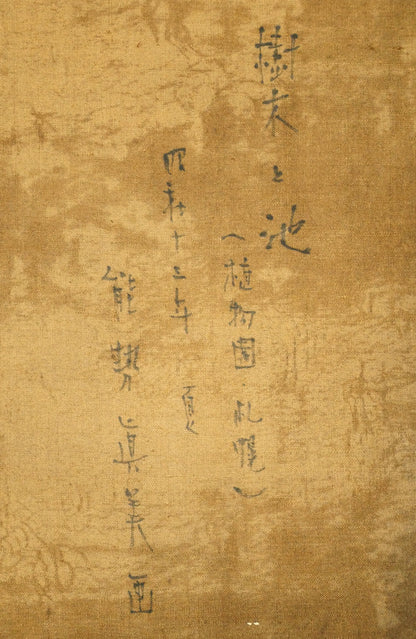 樹木と池
(植物園・札幌)
昭和十三年 夏
能勢眞美画